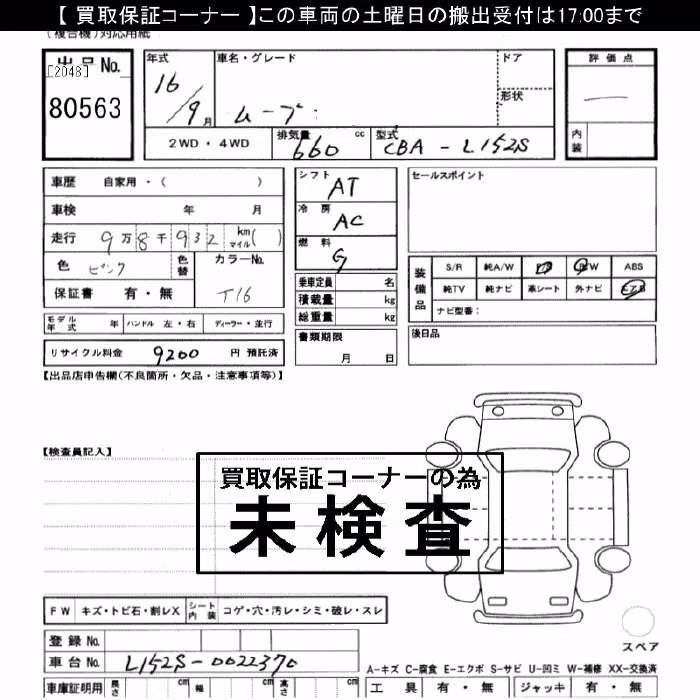 【 買取保証コーナー 】この車両の土曜日の搬出受付は17:00まで
(複合機)対応用紙
出品No.
[2048]
80563
年式
16/9月
車名・グレード
ムーブ
ドア
形状
2WD・4WD
排気量
660
cc
型式
CBA - L152S
評価点
内装
車歴 自家用・( )
車検 年 月
走行 9万8千932 km マイル( )
色 ピンク
色替
カラーNo.
T16
保証書 有・無
モデル年式 年
ハンドル 左・右
ディーラー・並行
リサイクル料金 9200 円 預託済
シフト AT
冷房 AC
燃料 G
乗車定員 名
積載量 kg
総重量 kg
書類期限
月 日
セールスポイント
装備品
S/R 純A/W P/S P/W ABS
純TV 純ナビ 革シート 外ナビ エアB
ナビ型番:
後日品
【出品店申告欄(不良箇所・欠品・注意事項等)】
【検査員記入】
買取保証コーナーの為
未検査
FW キズ・トビ石・割レX
シート内装 コゲ・穴・汚レ・シミ・破レ・スレ
登録No.
車台No. L152S-0022370
車庫証明用 長さ cm 幅 cm 高さ cm
スペア
A-キズ C-腐食 E-エクボ S-サビ U-凹ミ W-補修 XX-交換済
工具 有・無 ジャッキ 有・無